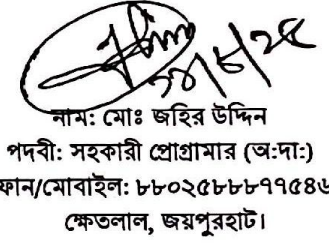 ২০/৮/২৫
নাম: মোঃ জহির উদ্দিন
পদবী: সহকারী প্রোগ্রামার (অ:দা:)
ফোন/মোবাইল: ৮৮০২৫৮৮৮৭৭৫৪৬
ক্ষেতলাল, জয়পুরহাট।